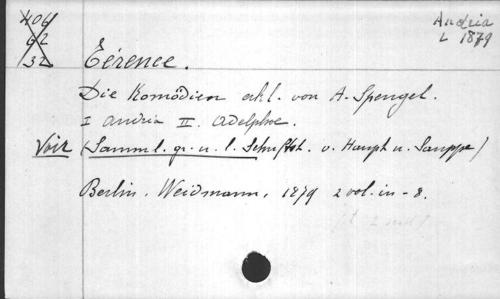 406
62
32
Andria
L 1879
Térence.
Die Komödien erkl. von A. Spengel.
I Andria II. Adelphoe.
Voir (Samml. gr. u. l. Schriftst. v. Haupt u. Sauppe)
Berlin. Weidmann. 1879 2 vol. in-8.